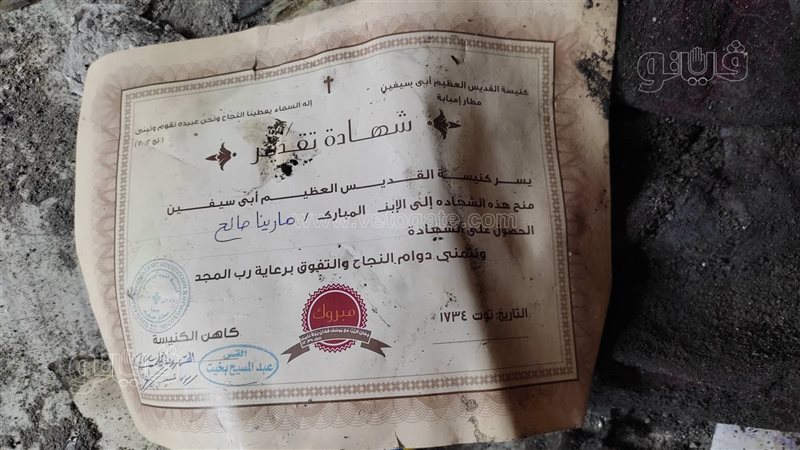 ڤيتو
كنيسة القديس العظيم أبى سيفين
مطار إمبابة
إله السماء يعطينا النجاح ونحن عبيده نقوم ونبنى
( نح ٢:٢٠ )
شهادة تقدير
يسر كنيسة القديس العظيم أبى سيفين
منح هذه الشهاده إلى الإبن المبارك / مارينا صالح
الحصول على الشهادة
ونتمنى دوام النجاح والتفوق برعاية رب المجد
www.vetogate.com
التاريخ: توت ١٧٣٤
مبروك
كاهن الكنيسة
القس
عبد المسيح بخيت
ڤيتو